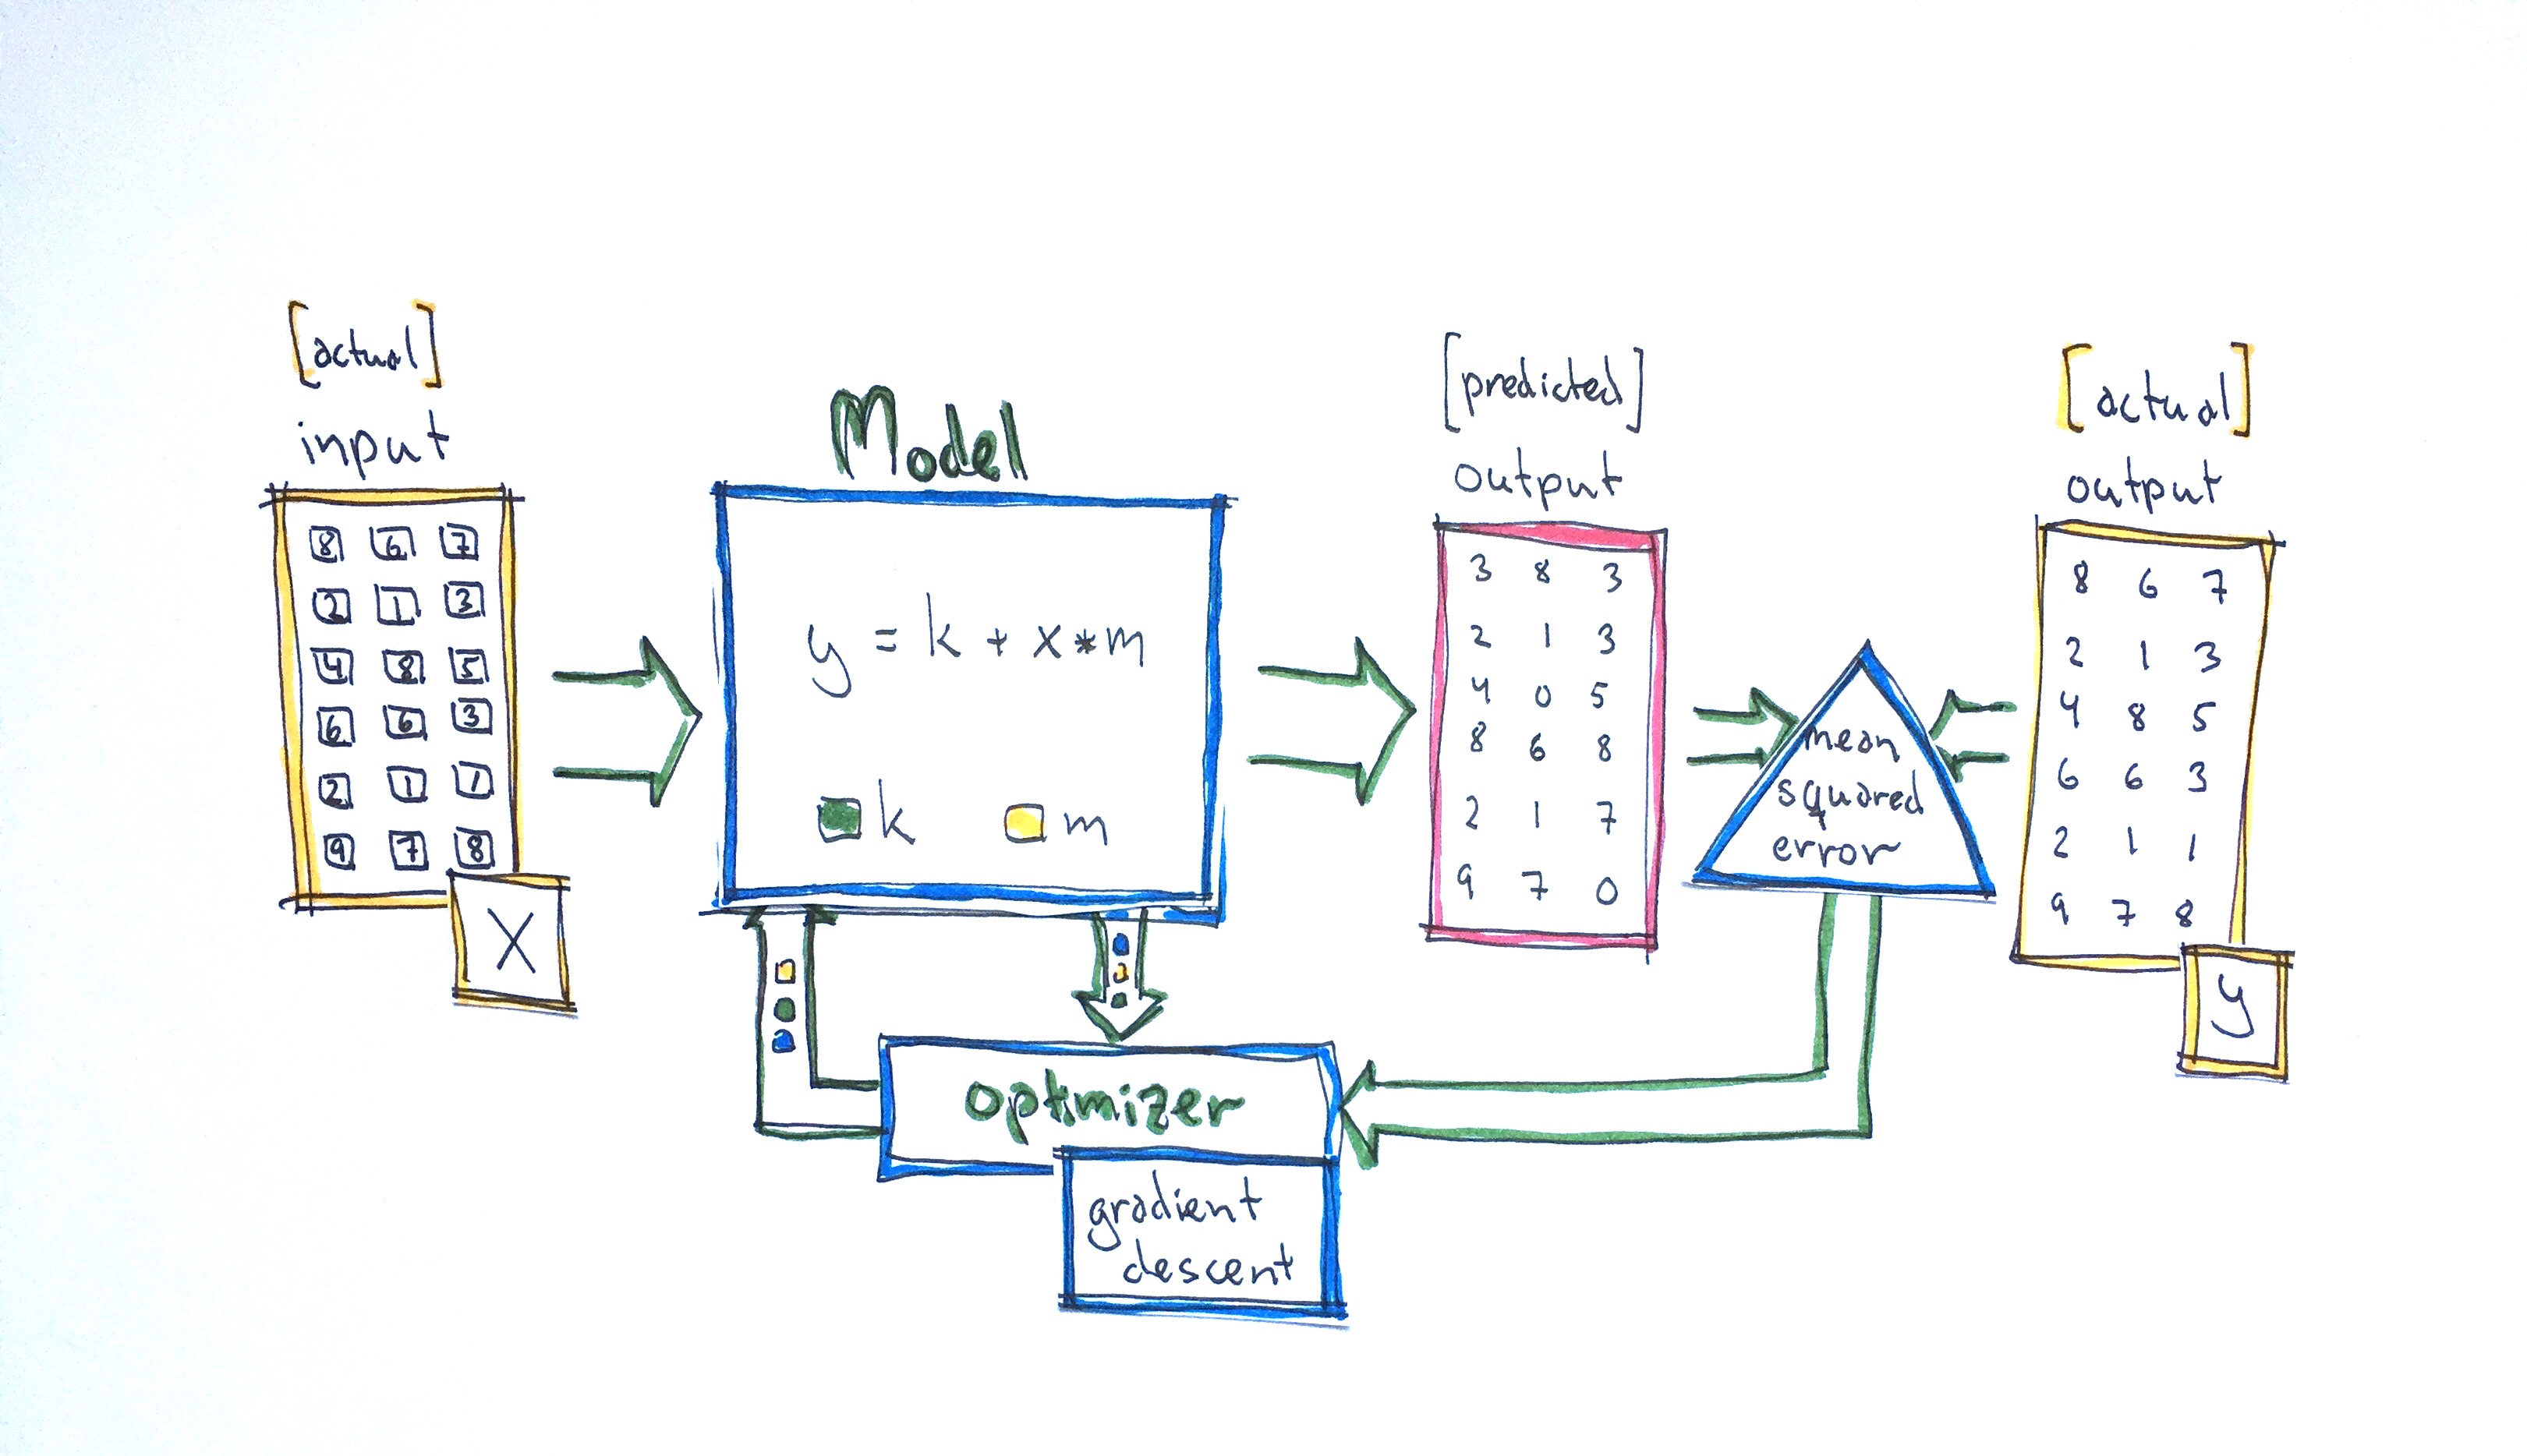 [actual]
input
8 6 7
2 1 3
4 8 5
6 6 3
2 1 1
9 7 8
X
Model
y = k + x * m
k m
[predicted]
output
3 8 3
2 1 3
4 0 5
8 6 8
2 1 7
9 7 0
mean
squared
error
[actual]
output
8 6 7
2 1 3
4 8 5
6 6 3
2 1 1
9 7 8
y
optimizer
gradient
descent